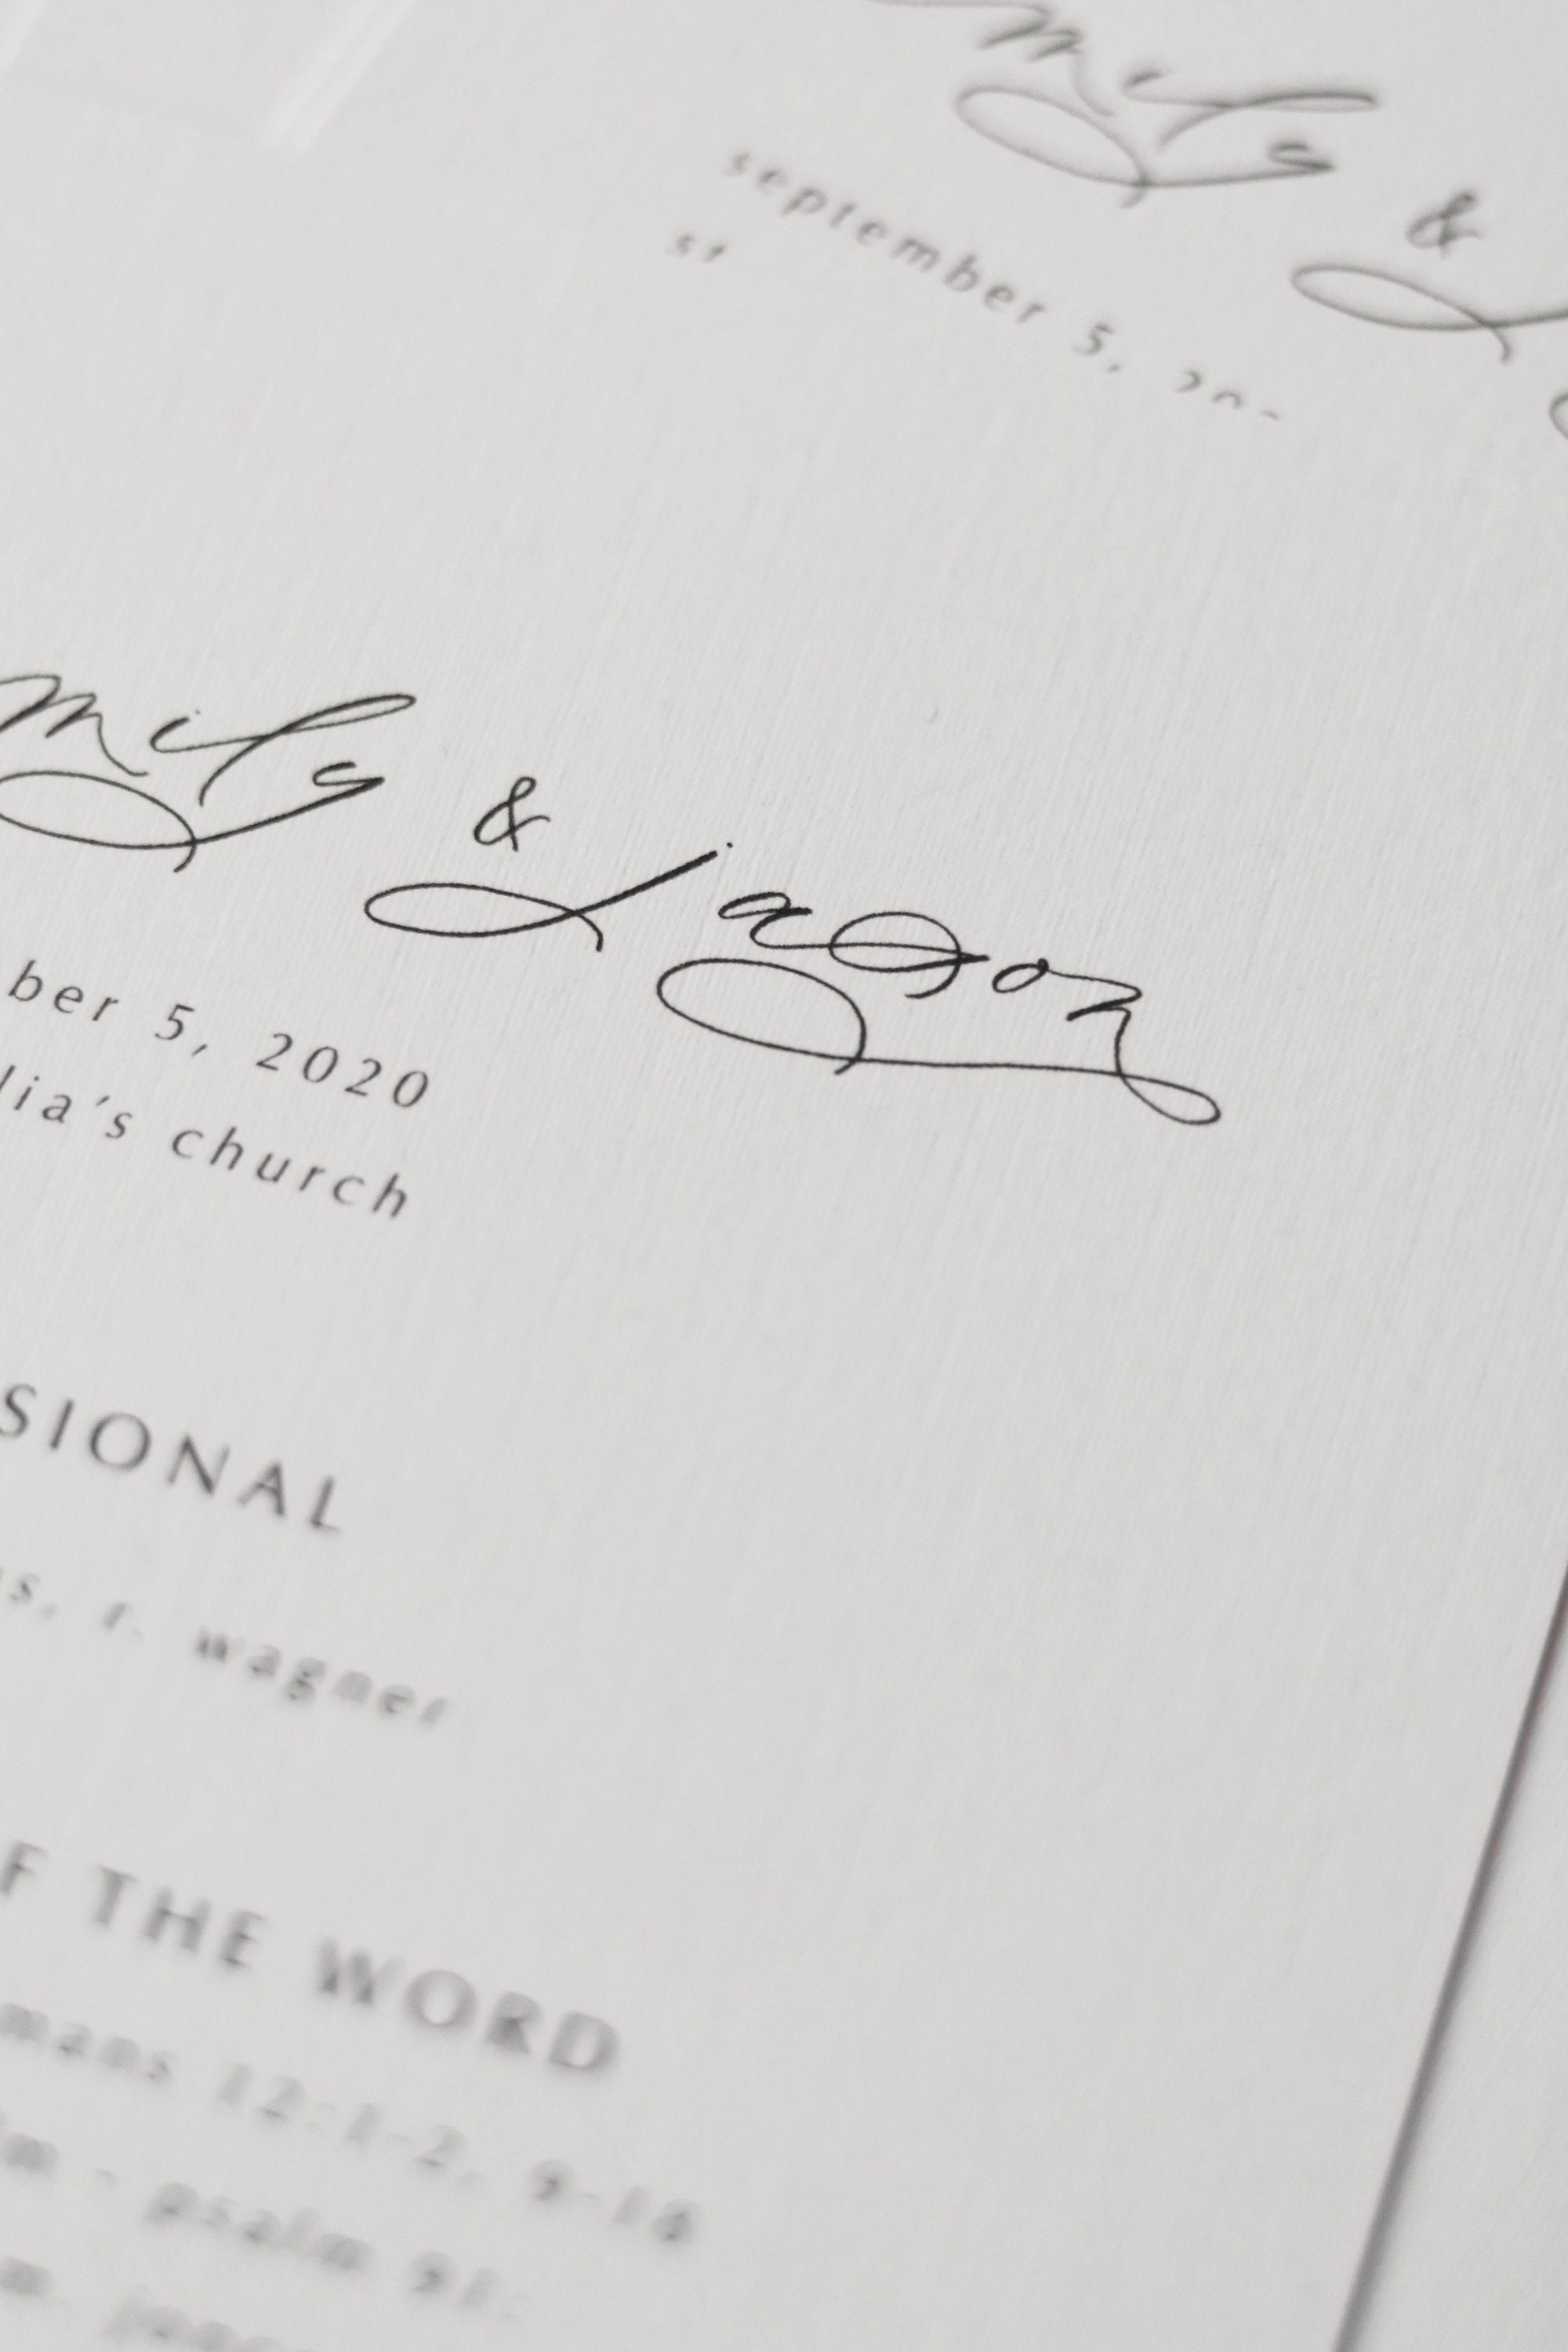 mily &
september 5,
st
mily & jason
ber 5, 2020
lia's church
SIONAL
s, r. wagner
F THE WORD
mans 12:1-2, 9-18
m - psalm 91: